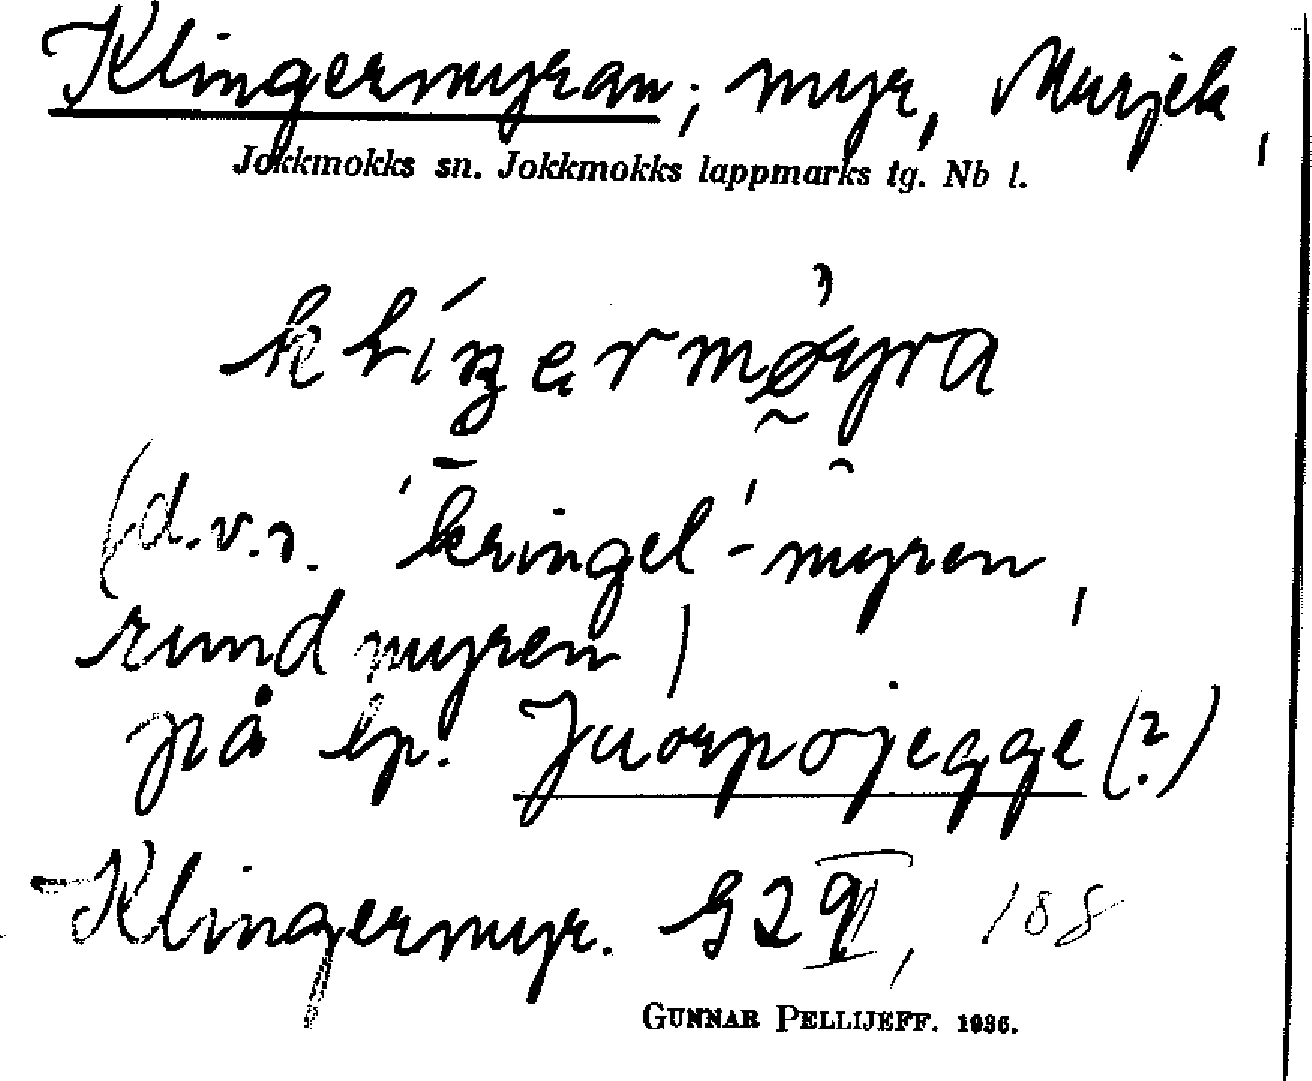 Klingermyran; myr, Murjek,
Jokkmokks sn. Jokkmokks lappmarks tg. Nb l.
(d.v.s. 'kringel'-myren,
rundmyren)
på lp. Juorpojegge (?)
Klingermyr. 188
GUNNAR PELLIJEFF. 1936.